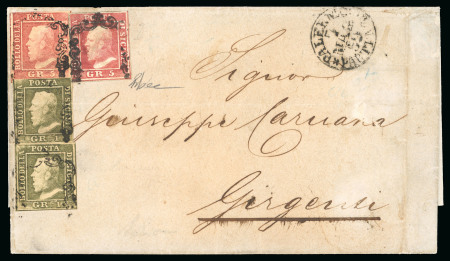 BOLLO DELLA POSTA DI SICILIA GR. 5
BOLLO DELLA POSTA DI SICILIA GR. 5
BOLLO DELLA POSTA DI SICILIA GR. 1
BOLLO DELLA POSTA DI SICILIA GR. 1
PALERMO
Signor
Giuseppe Caruana
Girgenti